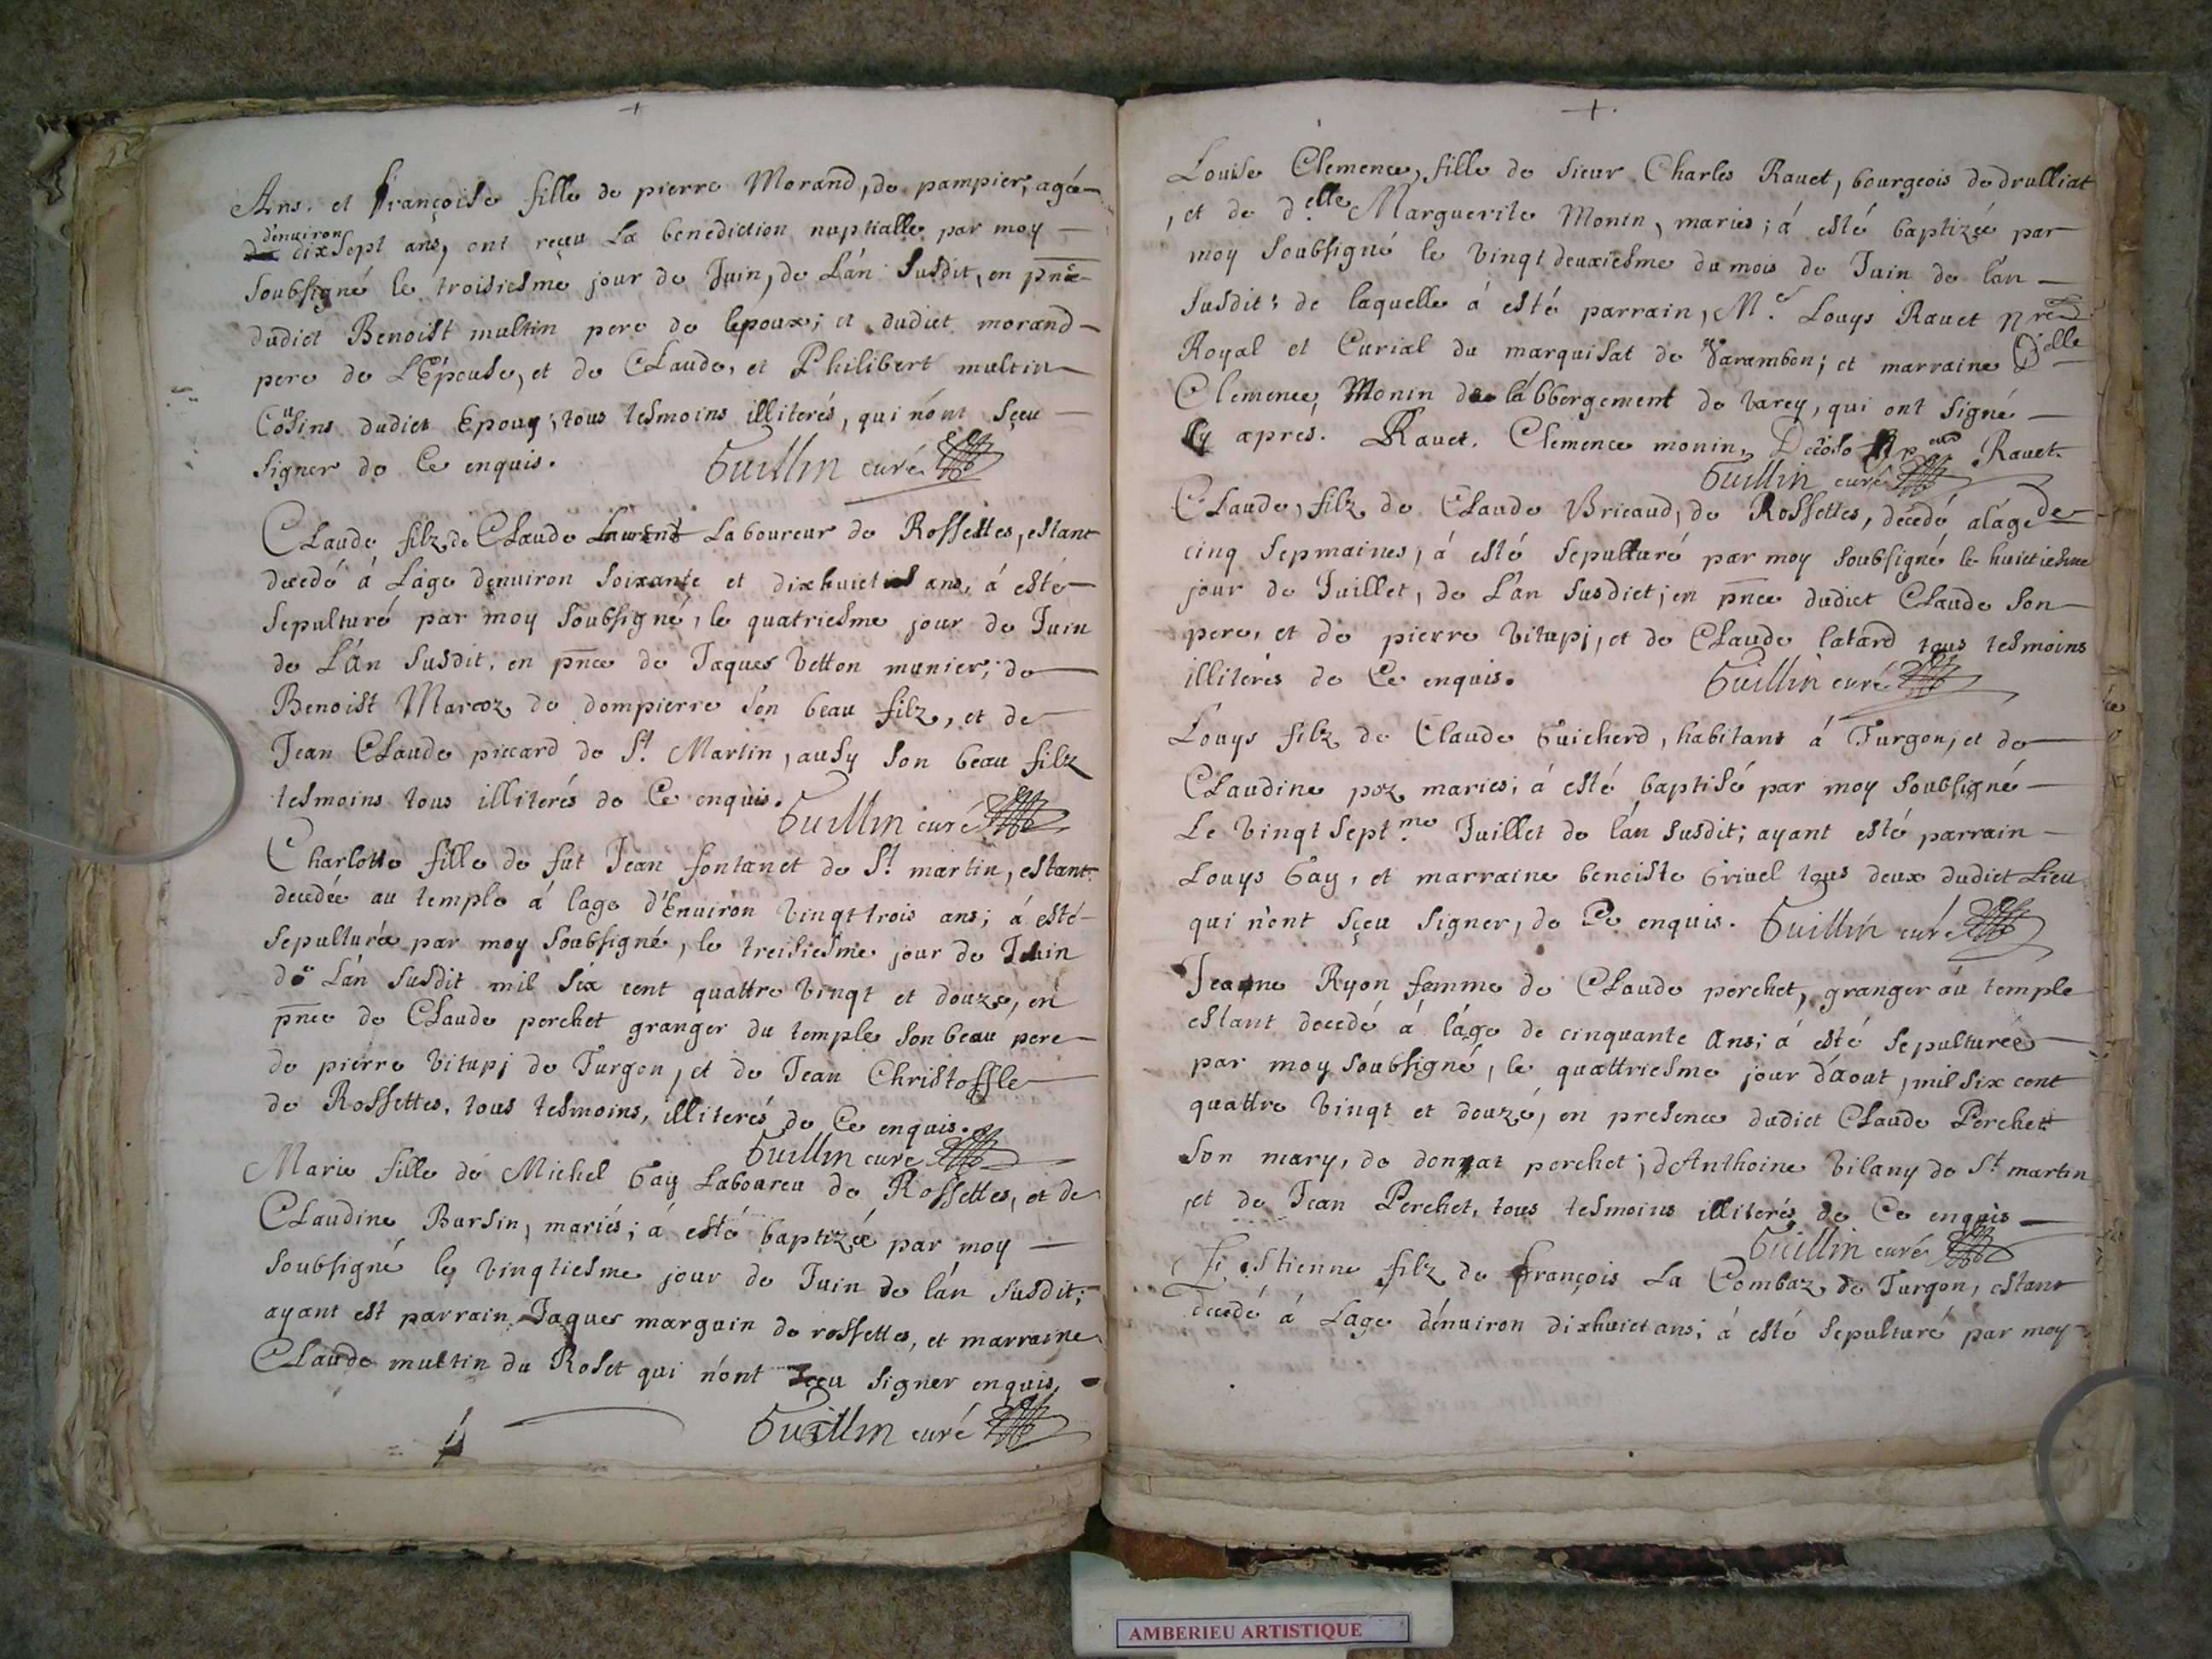 +
Ans. et françoise fille de pierre Morand, de pampier, agé
d'enuiron
dix sept ans, ont reçeu La benediction nuptialle par moy
soubsigné le troisiesme jour de Juin, de L'án susdit, en pnce
dudict Benoist multin pere de lepoux; et dudict morand
pere de L'Epouse, et de CLaude, et Philibert multin
Cousins dudict Epoux; tous tesmoins illiterés, qui n'ont sçeu
signer de Ce enquis. Guillin curé
CLaude filz de CLaude Laurent Laboureur de Rossettes, estant
decedé á L'age denuiron soixante et dixhuict ans, á esté
sepulturé par moy soubsigné, le quatriesme jour de Juin
de L'án susdit, en pnce de Jaques Vetton munier; de
Benoist Marcoz de dompierre son beau filz, et de
Jean CLaude piccard de St Martin, ausy son beau filz
tesmoins tous illiterés de Ce enquis. Guillin curé
Charlotte fille de fut Jean fontanet de St martin, estant
decedée au temple á l'age d'Enuiron vingt trois ans; á esté
sepulturée par moy soubsigné, le treisiesme jour de Juin
de L'án susdit mil six cent quattre vingt et douze, en
pnce de CLaude perchet granger du temple son beau pere
de pierre vitupj de Turgon, et de Jean Christoffle
de Rossettes, tous tesmoins, illiterés de Ce enquis.
Guillin curé
Marie fille de Michel Gay Laboureu de Rossettes, et de
CLaudine Bursin, mariés; á esté baptizée par moy
soubsigné le vingtiesme jour de Juin de l'án susdit;
ayant est parrain Jaques marguin de rossettes, et marraine
CLaude multin du Roset qui n'ont sçeu signer enquis.
Guillin curé
+
Louise Clemence, fille de sieur Charles Rauet, bourgeois de drulliat
, et de delle Marguerite Monin, maries; á esté baptizée par
moy soubsigné le vingt deuxiesme du mois de Juin de l'án
susdit; de laquelle á esté parrain, Me. Louys Rauet
Royal et Curial du marquisat de Varambon; et marraine Delle
Clemence Monin de l'ábbergement de varey, qui ont signé
Cy apres. Rauet. Clemence monin, Rauet.
Guillin curé
CLaude, filz de CLaude Bricaud, de Rossettes, decedé alage de
cinq sepmaines, á esté sepulturé par moy soubsigné le huictiesme
jour de Juillet, de L'án susdict; en pnce dudict CLaude son
pere, et de pierre vitupj, et de CLaude latard tous tesmoins
illiterés de Ce enquis. Guillin curé
Louys filz de Claude Guicherd, habitant á Turgon, et de
CLaudine poz maries; á esté baptisé par moy soubsigné
Le vingt septme. Juillet de l'án susdit; ayant esté parrain
Louys Gay, et marraine benoiste Griuel tous deux dudict Lieu
qui n'ont sçeu signer, de Ce enquis. Guillin curé
Jeanne Ryon femme de CLaude perchet, granger áu temple
estant decedé á l'áge de cinquante Ans; á esté sepulturée
par moy soubsigné, le quattriesme jour d'áout, mil six cent
quattre vingt et douzé, en presence dudict CLaude Perchet
son mary, de donnat perchet; d'Anthoine vilany de St martin
, et de Jean Perchet, tous tesmoins illiterés de Ce enquis
Guillin curé
Estienne filz de françois La Combaz de Turgon, estant
decedé á L'age d'énuiron dixhuict ans; á esté sepulturé par moy
AMBERIEU ARTISTIQUE